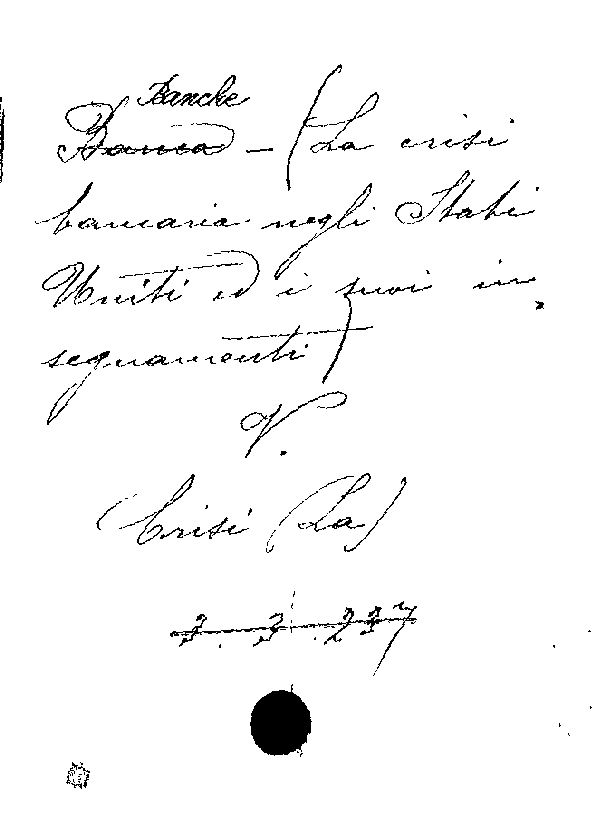 Banche
Banca - (La crisi
bancaria negli Stati
Uniti ed i suoi in
segnamenti)
V.
Crisi (La)
3. 3. 237